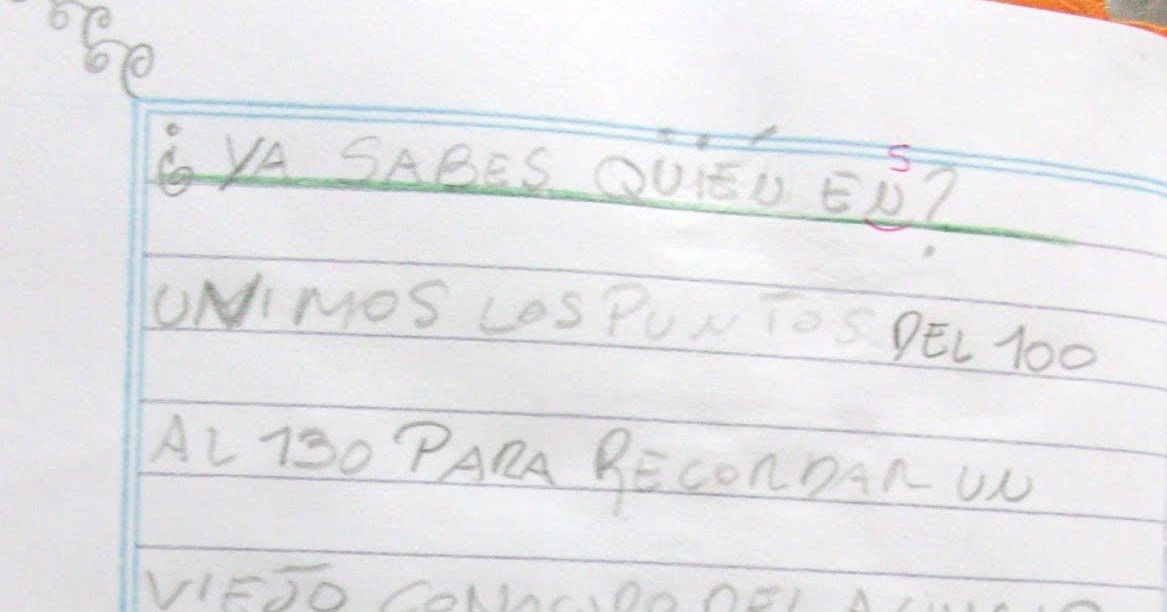 S
¿YA SABES QÜIÉN EN?
UNIMOS LOS PUNTOS DEL 100
AL 130 PARA RECORDAR UN
VIEJO CONOCIDO DEL